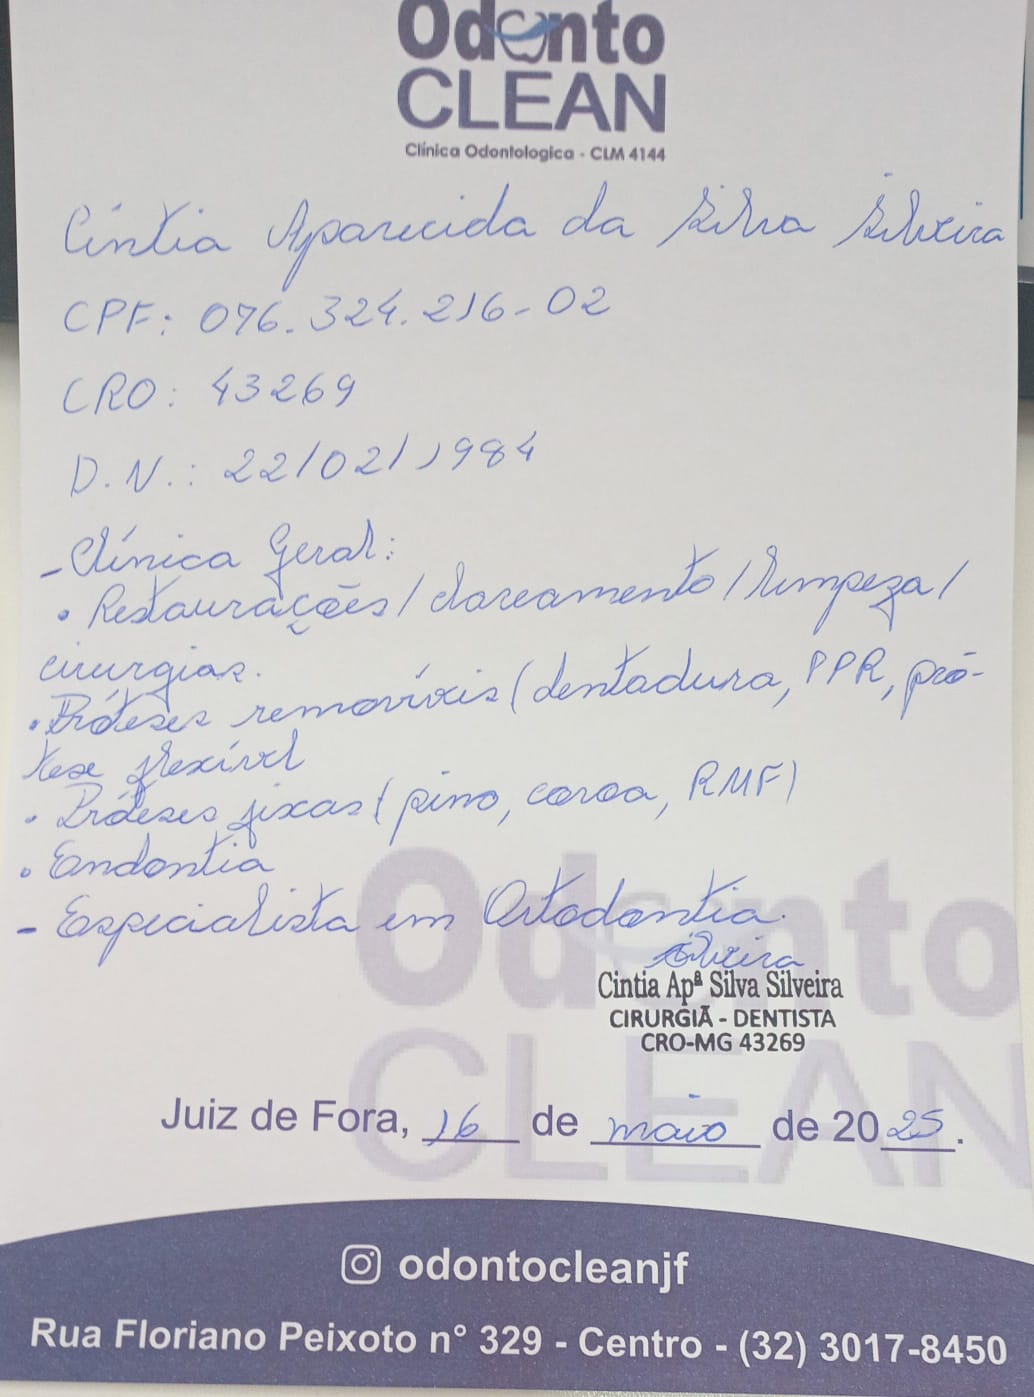 Odonto
CLEAN
Clínica Odontologica - CLM 4144
Cíntia Aparecida da Silva Silveira
CPF: 076.324.216-02
CRO: 43269
D.N.: 22/02/1984
- Clínica Geral:
• Restaurações/clareamento/limpeza/
cirurgias.
• Próteses removíveis (dentadura, PPR, pró-
tese flexível
• Próteses fixas (pino, coroa, RMF)
• Endontia
- Especialista em Ortodontia.
Silveira
Cintia Apª Silva Silveira
CIRURGIÃ - DENTISTA
CRO-MG 43269
Odonto
CLEAN
Juiz de Fora, 16 de maio de 2025.
odontocleanjf
Rua Floriano Peixoto n° 329 - Centro - (32) 3017-8450